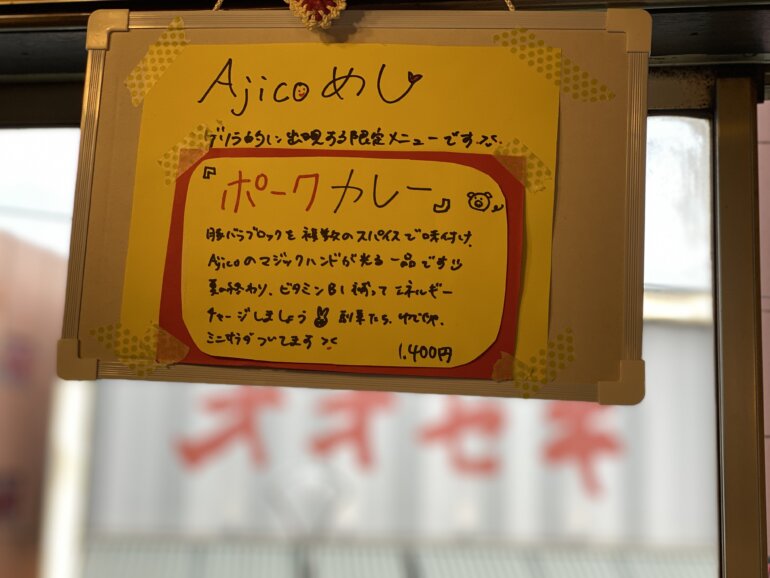 Ajicoめし
ゲリラ的に出現する限定メニューです
『ポークカレー』
豚バラブロックを複数のスパイスで味付け、
Ajicoのマジックハンドが光る一品です
夏の終わり、ビタミンB1補って エネルギー
チャージしましょう 副菜たち、ゆで卵、
ミニサラダついてます
1,400円
オオゼキ